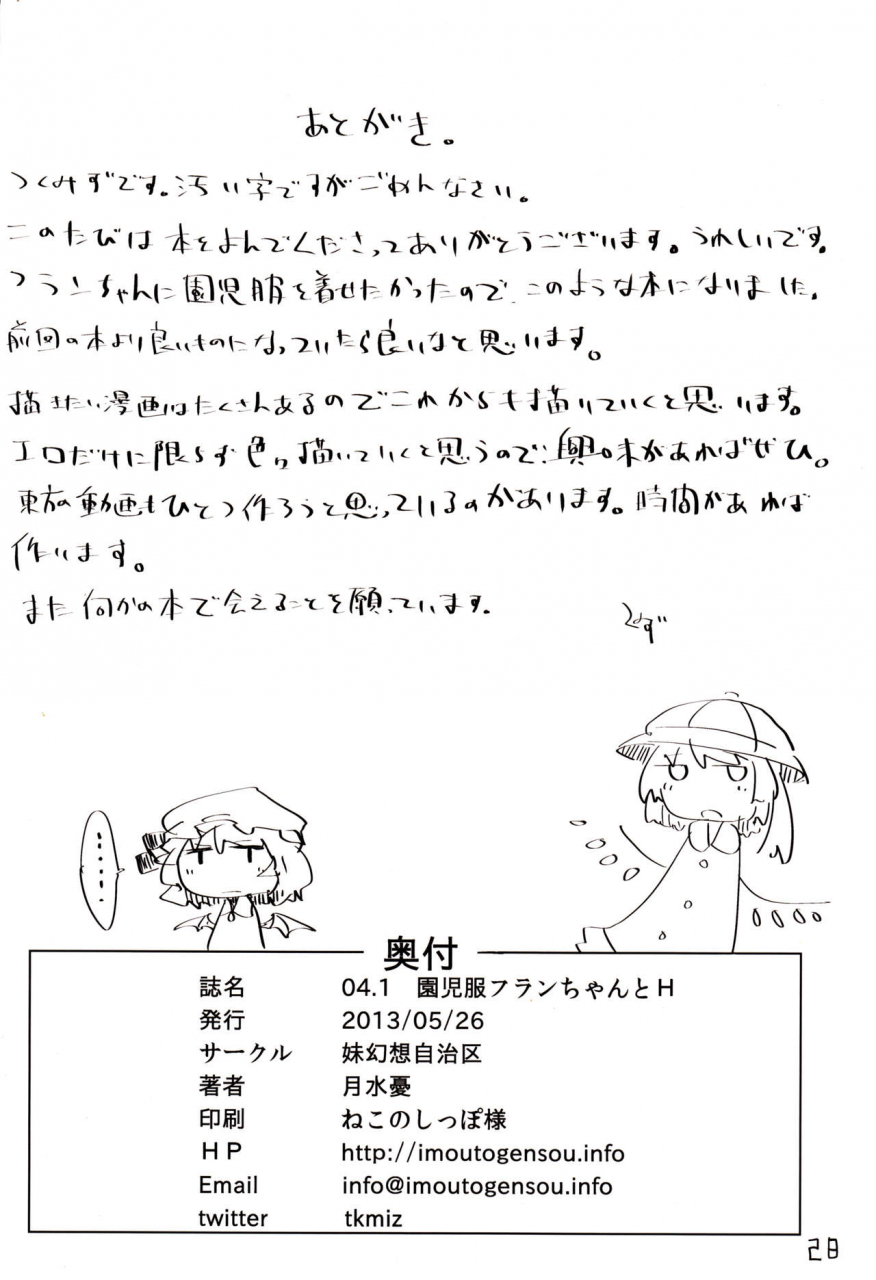 あとがき。
つくみずです。汚い字ですがごめんなさい。
このたびは本をよんでくださってありがとうございます。うれしいです。
フランちゃんに園児服を着せたかったので、このような本になりました。
前回の本より良いものになっていたら良いなと思います。
描きたい漫画はたくさんあるのでこれからも描いていくと思います。
エロだけに限らず色々描いていくと思うので、興味があればぜひ。
東方の動画もひとつ作ろうと思っているのがあります。時間があれば
作ります。
また何かの本で会えることを願っています。
......
奥付
誌名 04.1 園児服フランちゃんとH
発行 2013/05/26
サークル 妹幻想自治区
著者 月水憂
印刷 ねこのしっぽ様
HP http://imoutogensou.info
Email info@imoutogensou.info
twitter tkmiz
28